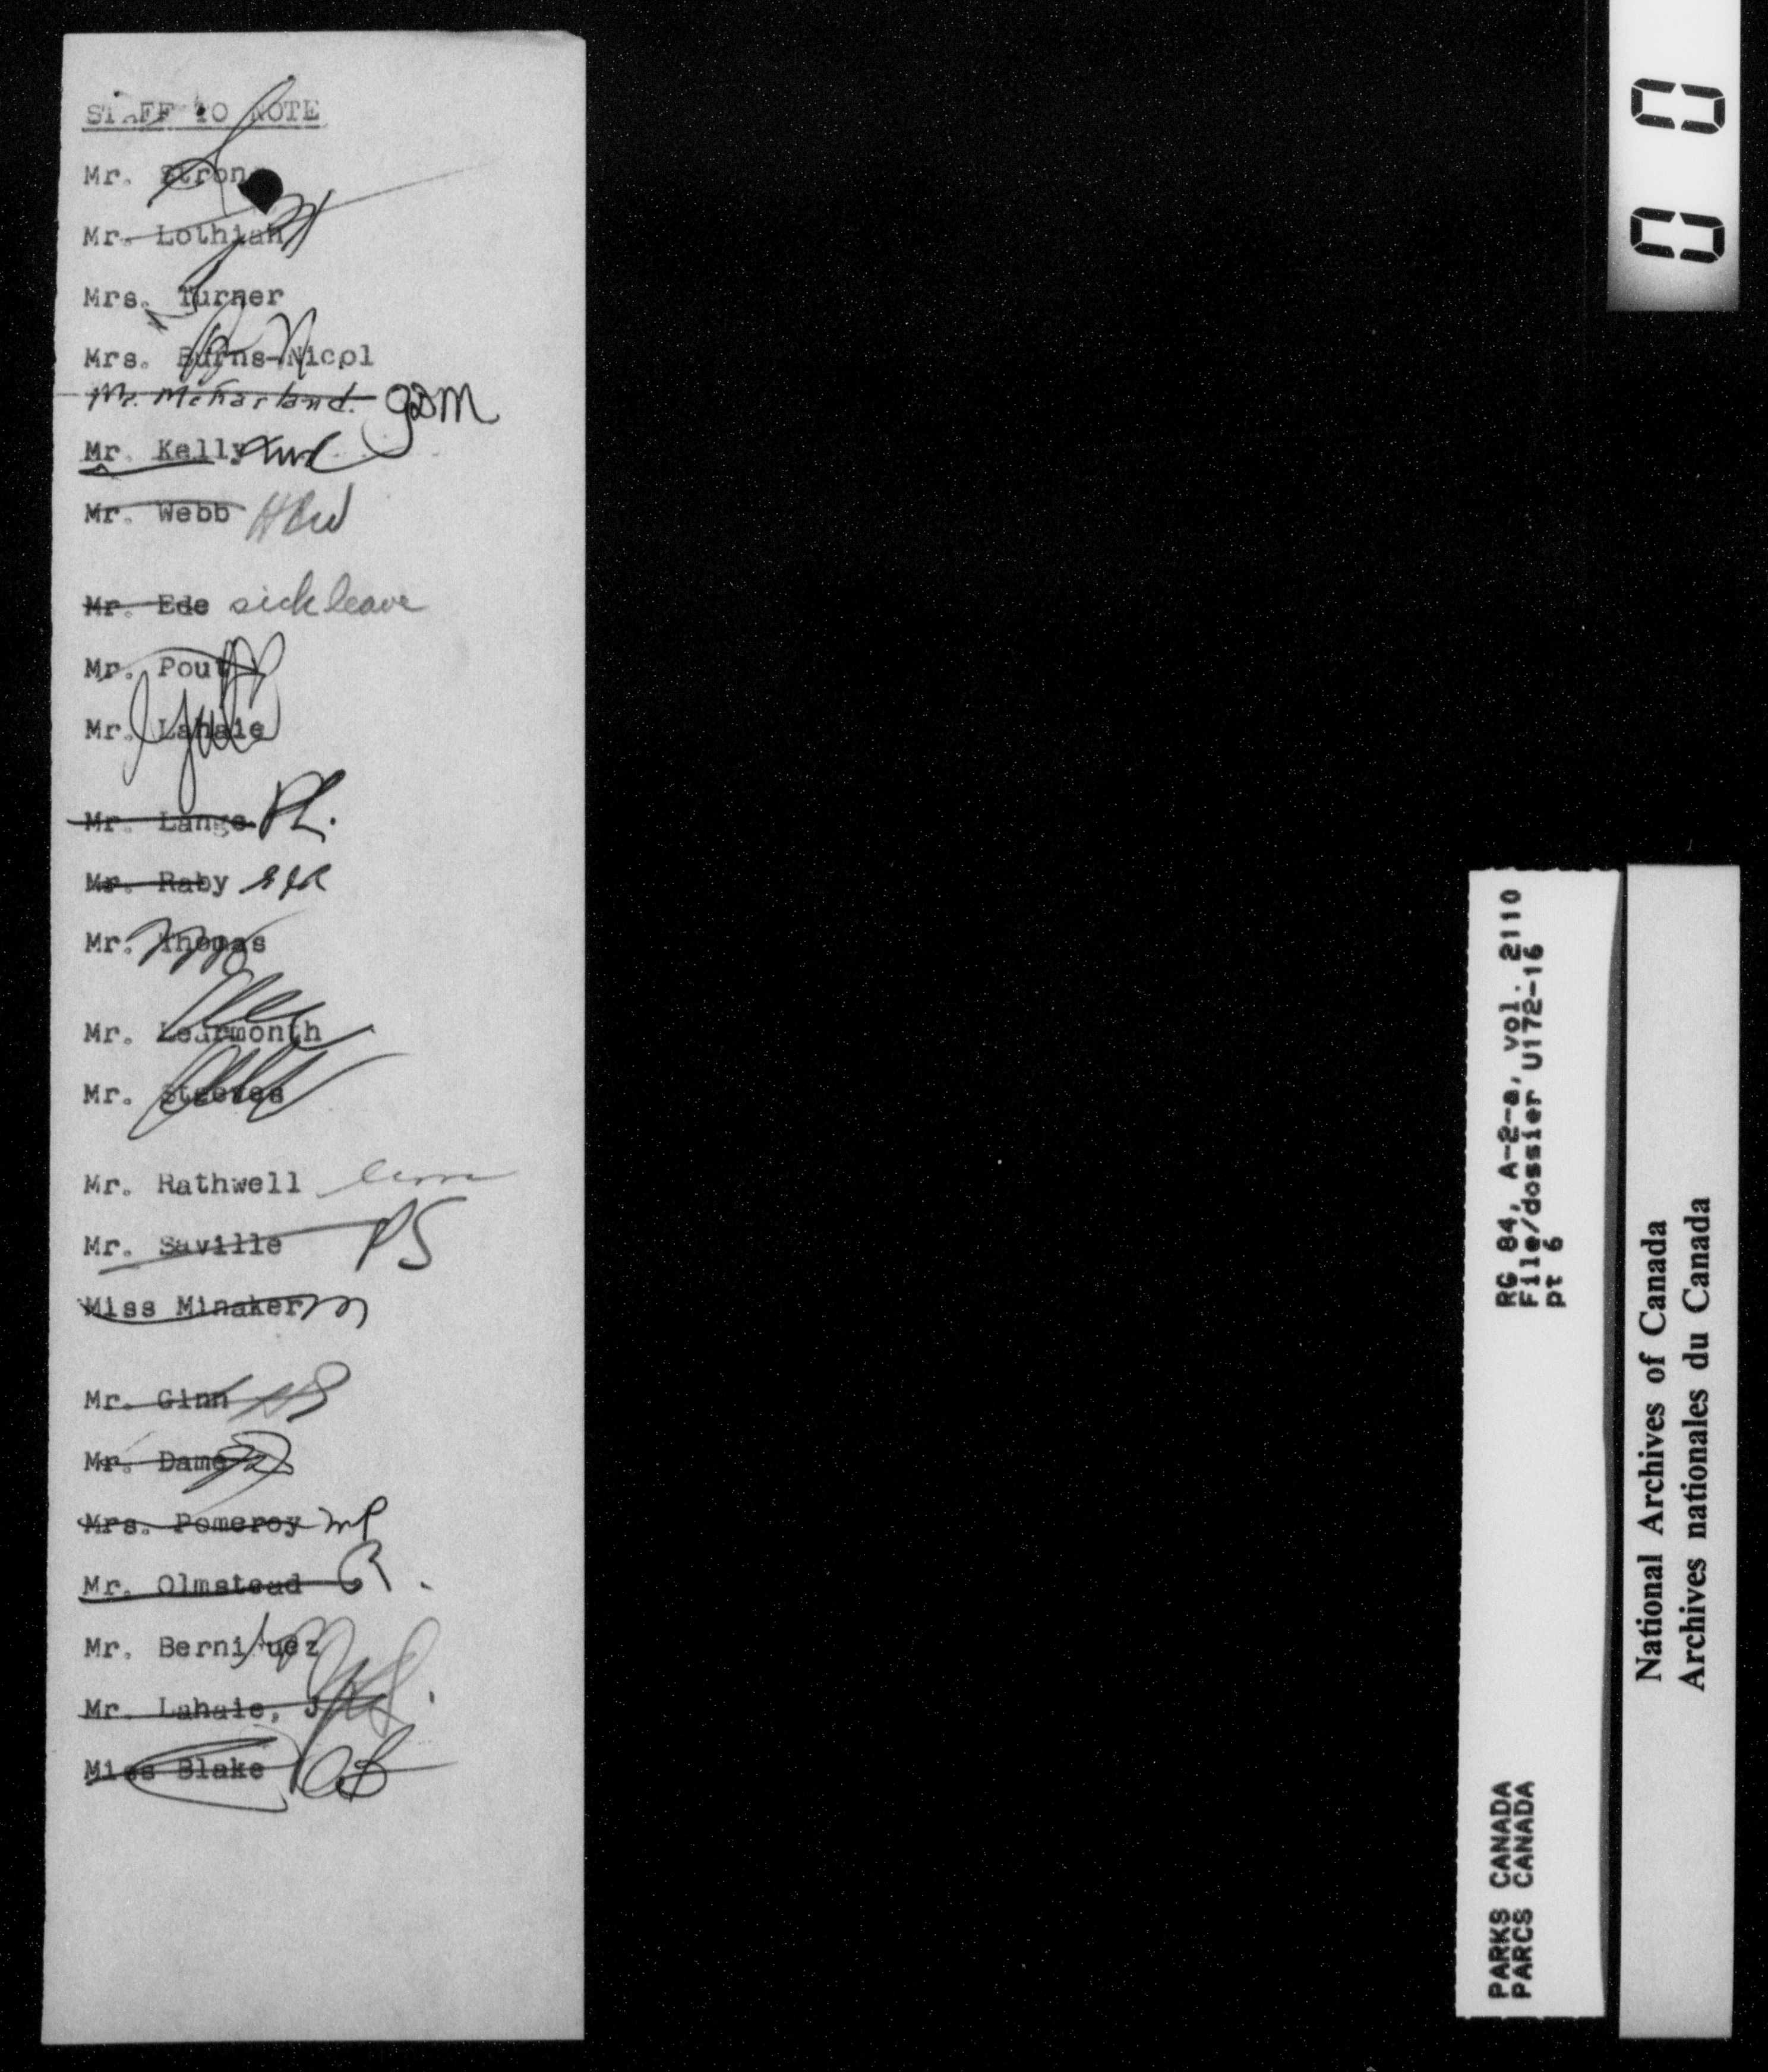 STAFF TO NOTE
Mr. Strong
Mr. Lothian
Mrs. Turner
Mrs. Burns-Nicol
Mr. McFarland. GDM
Mr. Kelly
Mr. Webb HCW
Mr. Ede sick leave
Mr. Pout
Mr. Lahaie
Mr. Lange PL.
Mr. Raby
Mr. Thomas
Mr. Learmonth
Mr. Steeves
Mr. Rathwell
Mr. Saville PS
Miss Minaker m
Mr. Ginn
Mr. Dame
Mrs. Pomeroy mP
Mr. Olmstead
Mr. Berniquez
Mr. Lahaie, J
Miss Blake
00
RG 84, A-2-a, vol. 2110
File/dossier U172-16
pt 6
PARKS CANADA
PARCS CANADA
National Archives of Canada
Archives nationales du Canada